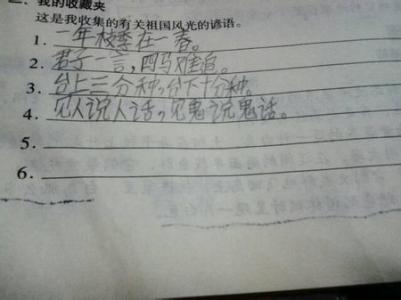 二、我的收藏夹
这是我收集的有关祖国风光的谚语。
1. 一年季在一春。
2. 君子一言，四马难追。
3. 台上三分种，台下十分种。
4. 见人说人话，见鬼说鬼话。
5.
6.